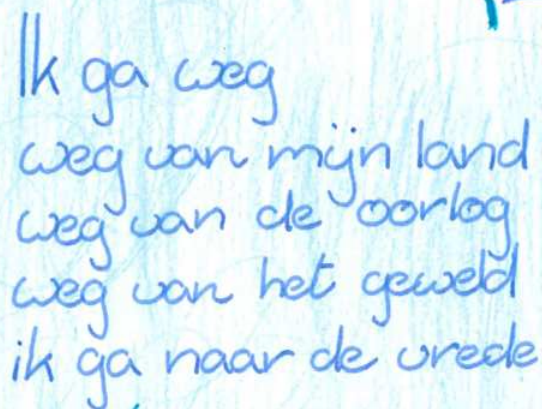 Ik ga weg
weg van mijn land
weg van de oorlog
weg van het geweld
ik ga naar de vrede